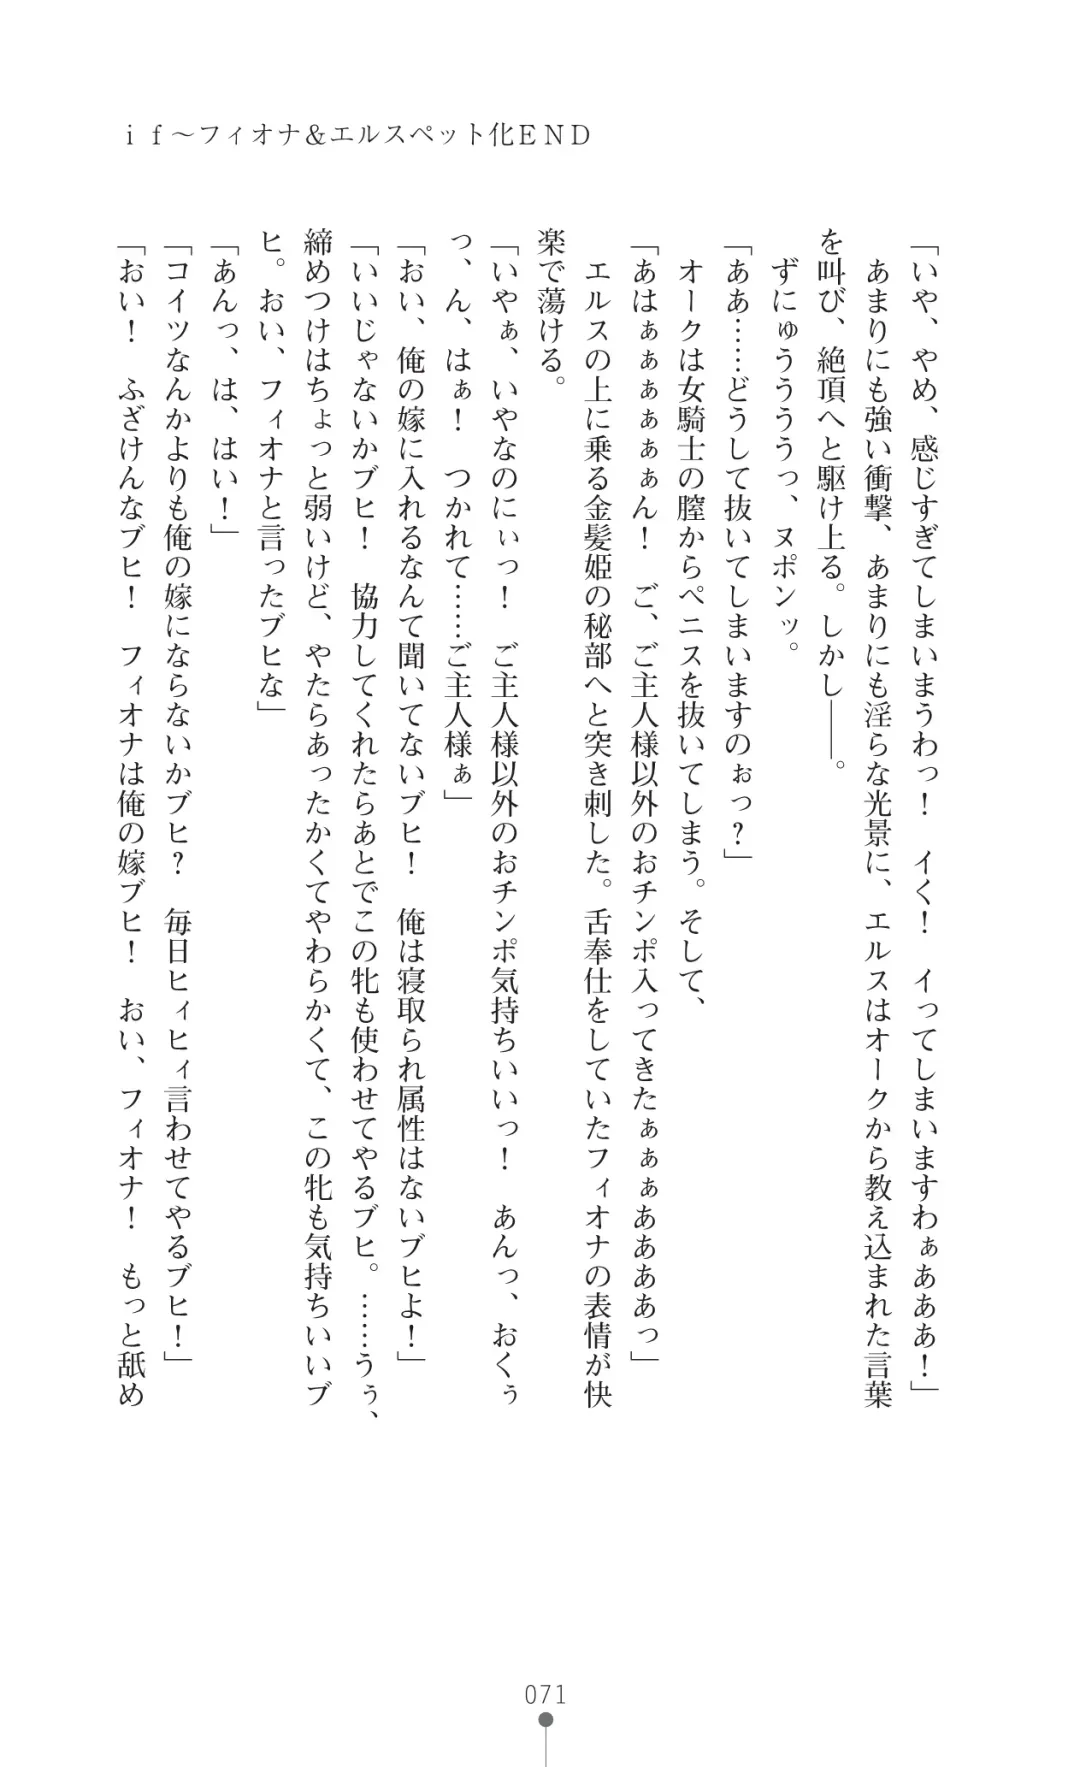 ｉｆ～フィオナ＆エルスペット化ＥＮＤ
「いや、やめ、感じすぎてしまいまうわっ！　イく！　イってしまいますわぁあああ！」
　あまりにも強い衝撃、あまりにも淫らな光景に、エルスはオークから教え込まれた言葉
を叫び、絶頂へと駆け上る。しかし――。
　ずにゅうううっ、ヌポンッ。
「ああ……どうして抜いてしまいますのぉっ？」
　オークは女騎士の膣からペニスを抜いてしまう。そして、
「あはぁぁぁぁぁん！　ご、ご主人様以外のおチンポ入ってきたぁぁぁああああっ」
　エルスの上に乗る金髪姫の秘部へと突き刺した。舌奉仕をしていたフィオナの表情が快
楽で蕩ける。
「いやぁ、いやなのにぃっ！　ご主人様以外のおチンポ気持ちいいっ！　あんっ、おくぅ
っ、ん、はぁ！　つかれて……ご主人様ぁ」
「おい、俺の嫁に入れるなんて聞いてないブヒ！　俺は寝取られ属性はないブヒよ！」
「いいじゃないかブヒ！　協力してくれたらあとでこの牝も使わせてやるブヒ。……うぅ、
締めつけはちょっと弱いけど、やたらあったかくてやわらかくて、この牝も気持ちいいブ
ヒ。おい、フィオナと言ったブヒな」
「あんっ、は、はい！」
「コイツなんかよりも俺の嫁にならないかブヒ？　毎日ヒィヒィ言わせてやるブヒ！」
「おい！　ふざけんなブヒ！　フィオナは俺の嫁ブヒ！　おい、フィオナ！　もっと舐め
071